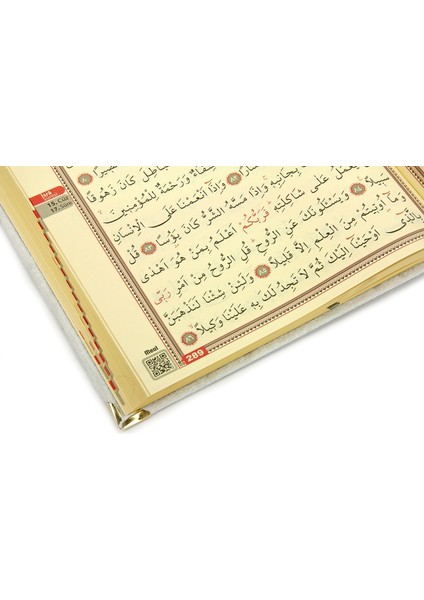 كَانَ زَهُوقًا
وَرَحْمَةٌ لِلْمُؤْمِنِينَ
وَاِذَٓا اَنْعَمْنَا عَلَى الْاِنْسَانِ
بِجَانِبِه۪ وَاِذَا مَسَّهُ الشَّرُّ كَانَ يَؤُ۫سًا ﴿٨٣﴾ قُلْ
يَعْمَلُ عَلٰى شَاكِلَتِه۪ فَرَبُّكُمْ اَعْلَمُ بِمَنْ هُوَ اَهْدٰى
سَب۪يلًا ﴿٨٤﴾ وَيَسْـَٔلُونَكَ عَنِ الرُّوحِ قُلِ الرُّوحُ مِنْ اَمْرِ رَبّ۪ى
وَمَٓا اُو۫ت۪يتُمْ مِنَ الْعِلْمِ اِلَّا قَل۪يلًا ﴿٨٥﴾ وَلَئِنْ شِئْنَا لَنَذْهَبَنَّ
بِالَّذ۪ٓى اَوْحَيْنَٓا اِلَيْكَ ثُمَّ لَا تَجِدُ لَكَ بِه۪ عَلَيْنَا وَك۪يلًا ﴿٨٦﴾
İsra
15. Cüz
17. Sure
Meal
289